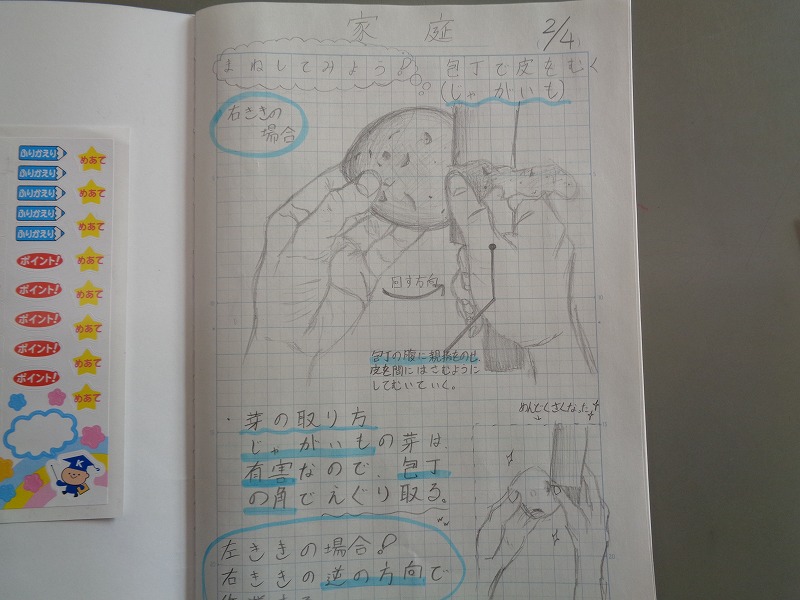 家庭
2/4
まねしてみよう!
包丁で皮をむく
(じゃがいも)
右ききの
場合
回す方向
包丁の腹に親指をのせ、
皮を間にはさむように
してむいていく。
・芽の取り方
じゃがいもの芽は
有害なので、包丁
の角でえぐり取る。
めんどくさくなった
左ききの場合!
右ききの逆の方向で
ふりかえり
ふりかえり
ふりかえり
ふりかえり
ふりかえり
めあて
めあて
めあて
めあて
めあて
めあて
めあて
めあて
ポイント!
ポイント!
ポイント!
ポイント!
ポイント!
K